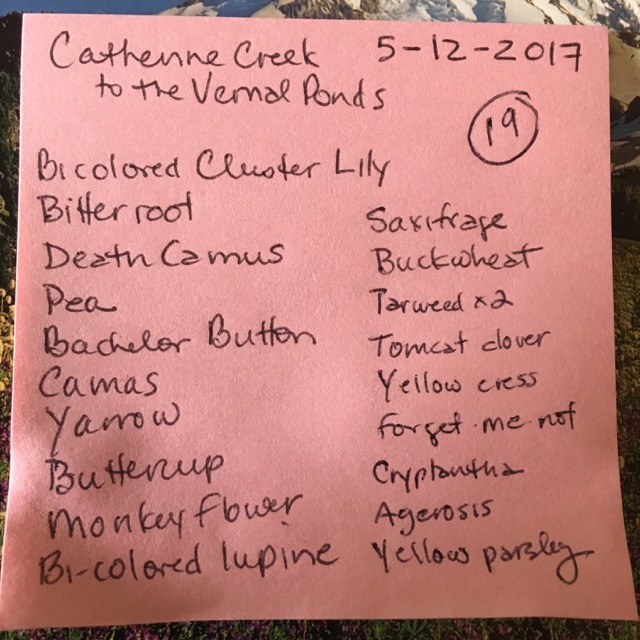 Catherine Creek 5-12-2017
to the Vernal Ponds
19
Bicolored Cluster Lily
Bitterroot
Death Camus
Pea
Bachelor Button
Camas
Yarrow
Buttercup
Monkey flower
Bi-colored lupine
Saxifrage
Buckwheat
Tarweed x2
Tomcat clover
Yellow cress
Forget-me not
Cryptantha
Agerosis
Yellow parsley